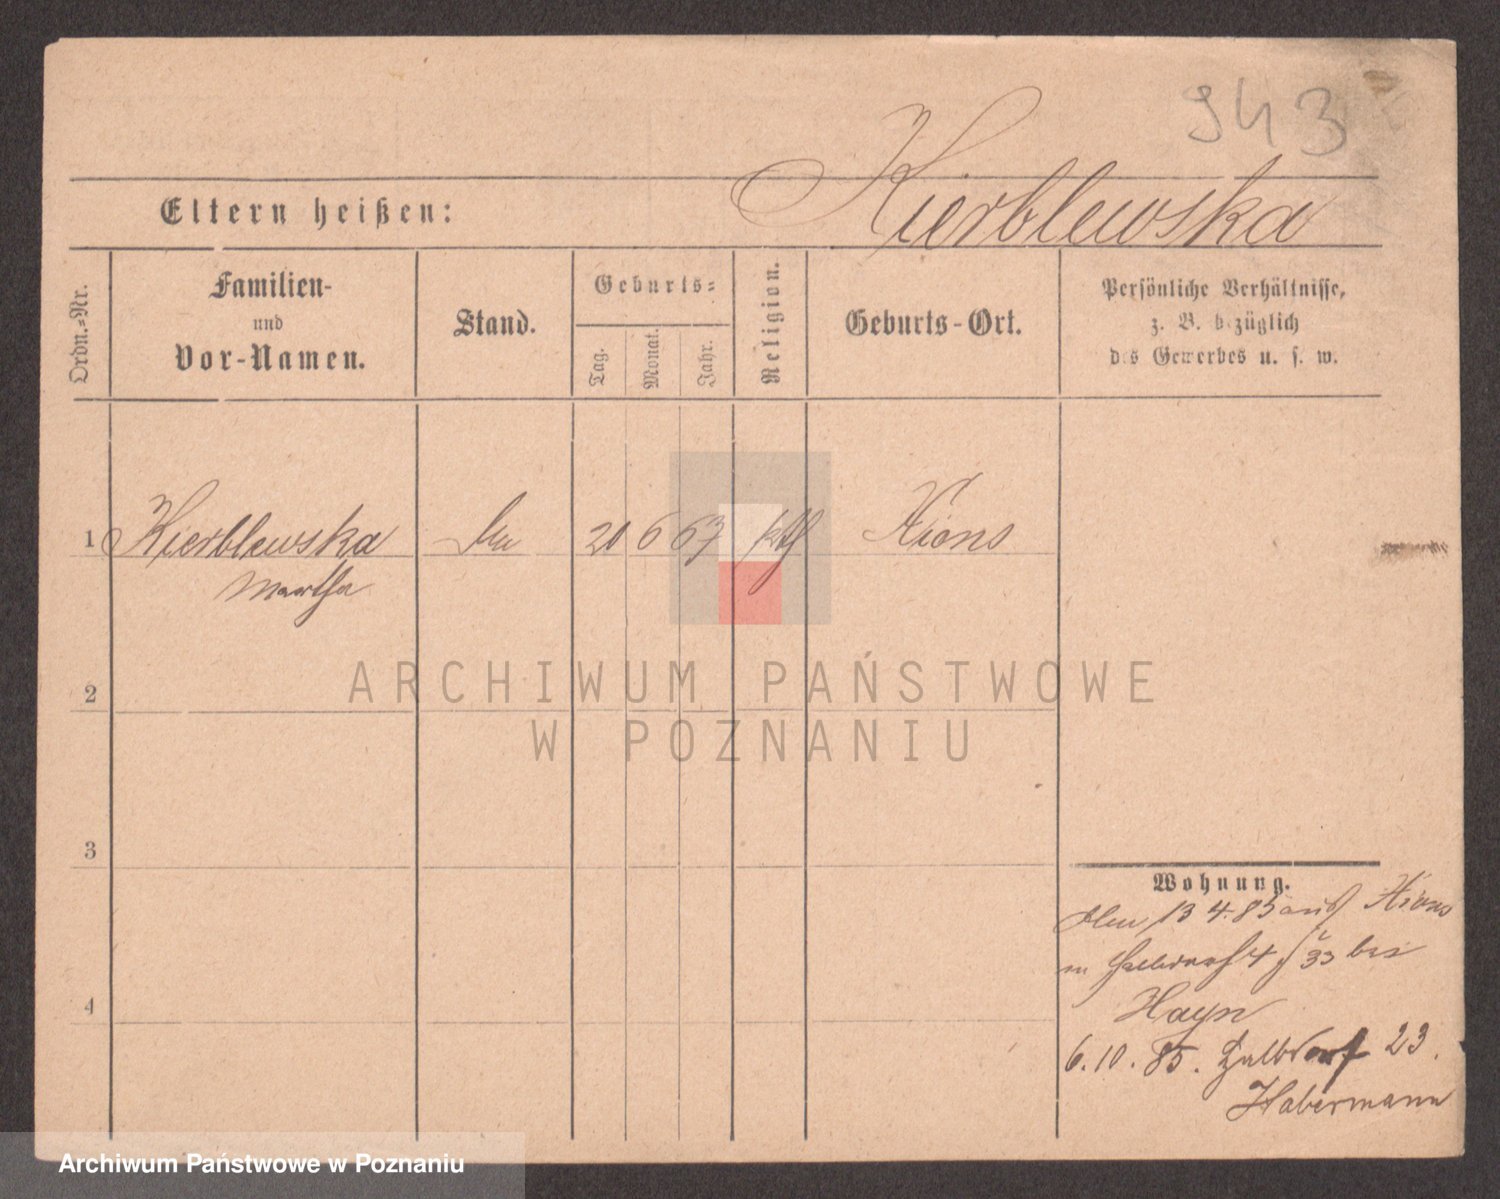 943
Kierblewska
Eltern heißen:
Ordn.-Nr.
Familien-
und
Vor-Namen.
Stand.
Geburts-
Tag.
Monat.
Jahr.
Religion.
Geburts-Ort.
Persönliche Verhältnisse,
z. B. bezüglich
des Gewerbes u. s. w.
1 Kierblewska 20 6 67 kth Xions
Martha
2
3
4
ARCHIWUM PAŃSTWOWE
W POZNANIU
Wohnung.
13 4. 85 aus Xions
Halbdorf bei
Hayn
6.10.85. Halbdorf 23.
Habermann
Archiwum Państwowe w Poznaniu